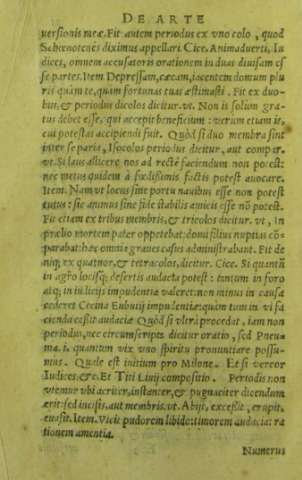 DE ARTE
uersionis meæ. Fit autem periodus ex vno colo, quod
Schœnotenes diximus appellari. Cice. Animaduerti, Iu
dices, omnem accusatoris orationem in duas diuisam es
se partes. Item Depressam, cæcam, iacentem domum plu
ris quàm te, quàm fortunas tuas æstimasti. Fit ex duo-
bus, & periodus dicolos dicitur. vt. Non is solum gra-
tus debet esse, qui accepit beneficium: verum etiam is,
cui potestas accipiendi fuit. Quòd si duo membra sint
inter se paria, Isocolos periodus dicitur, aut compar.
vt. Si laus allicere nos ad rectè faciendum non potest:
nec metus quidem à fœdissimis factis potest auocare.
Item. Nam vt locus sine portu nauibus esse non potest
tutus: sic animus sine fide stabilis amicis esse nõ potest.
Fit etiam ex tribus membris, & tricolos dicitur. vt, In
prælio mortem pater oppetebat: domi filius nuptias cõ-
parabat: hæc omnia graues casus administrabant. Fit de
niq; ex quatuor, & tetracolos, dicitur. Cice. Si quantũ
in agro locisq; desertis audacia potest: tantum in foro
atq; in iudicijs impudentia valeret: non minus in causa
cederet Cecina Eubutij impudentiæ: quàm tum in vi fa
cienda cessit audaciæ Quòd si vltrà procedat, iam non
periodus, nec circumscripta dicitur oratio, sed Pneu-
ma. i. quantum vix vno spiritu pronuntiare possu-
mus. Quale est initium pro Milone. Et si vereor
Iudices, &c. Et Titi Liuij compositio. Periodis non
vtemur vbi acriter, instanter, & pugnaciter dicendum
erit: sed incisis, aut membris. vt. Abijt, excessit, erupit,
euasit. Item. Vicit pudorem libido: timorem audacia: ra
tionem amentia.
Numerus